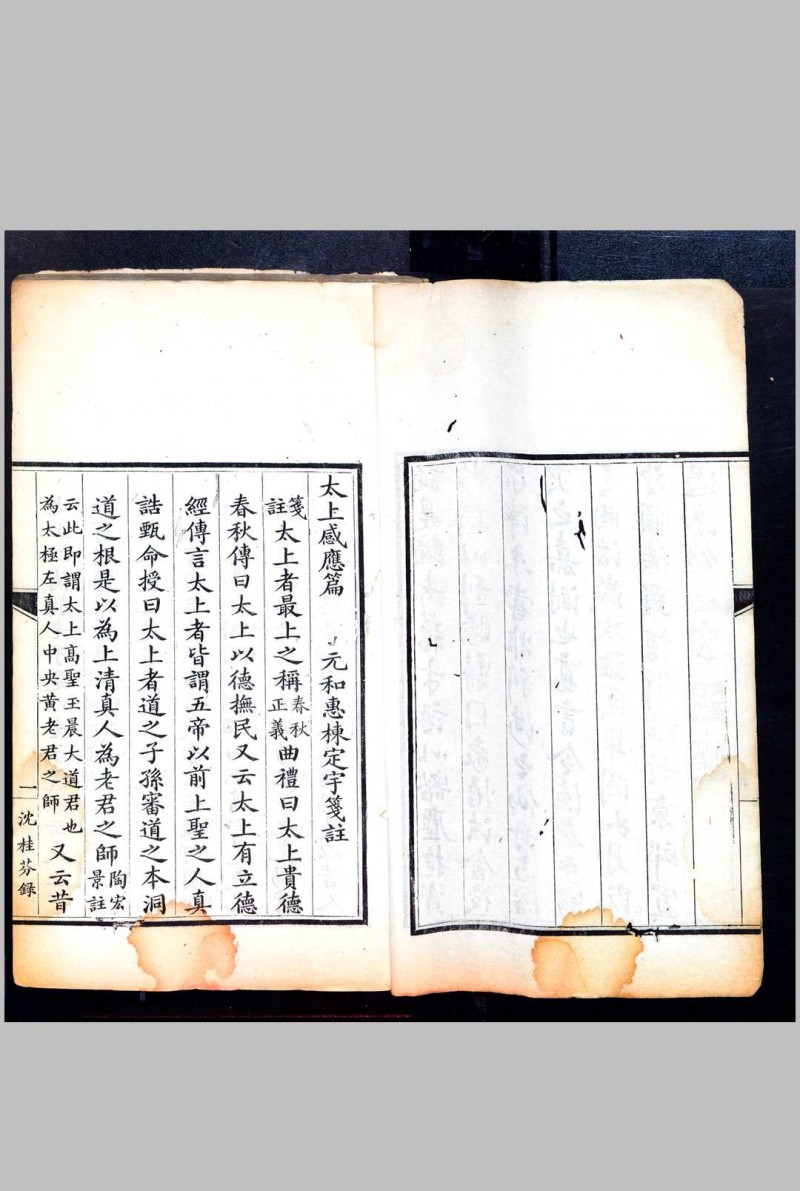 太上感應篇　元和惠棟定宇箋註
箋註太上者最上之稱春秋正義曲禮曰太上貴德
春秋傳曰太上以德撫民又云太上有立德
經傳言太上者皆謂五帝以前上聖之人真
誥甄命授曰太上者道之子孫審道之本洞
道之根是以為上清真人為老君之師陶宏景註
云此即謂太上高聖玉晨大道君也
為太極左真人中央黄老君之師
又云昔
一 沈桂芬録